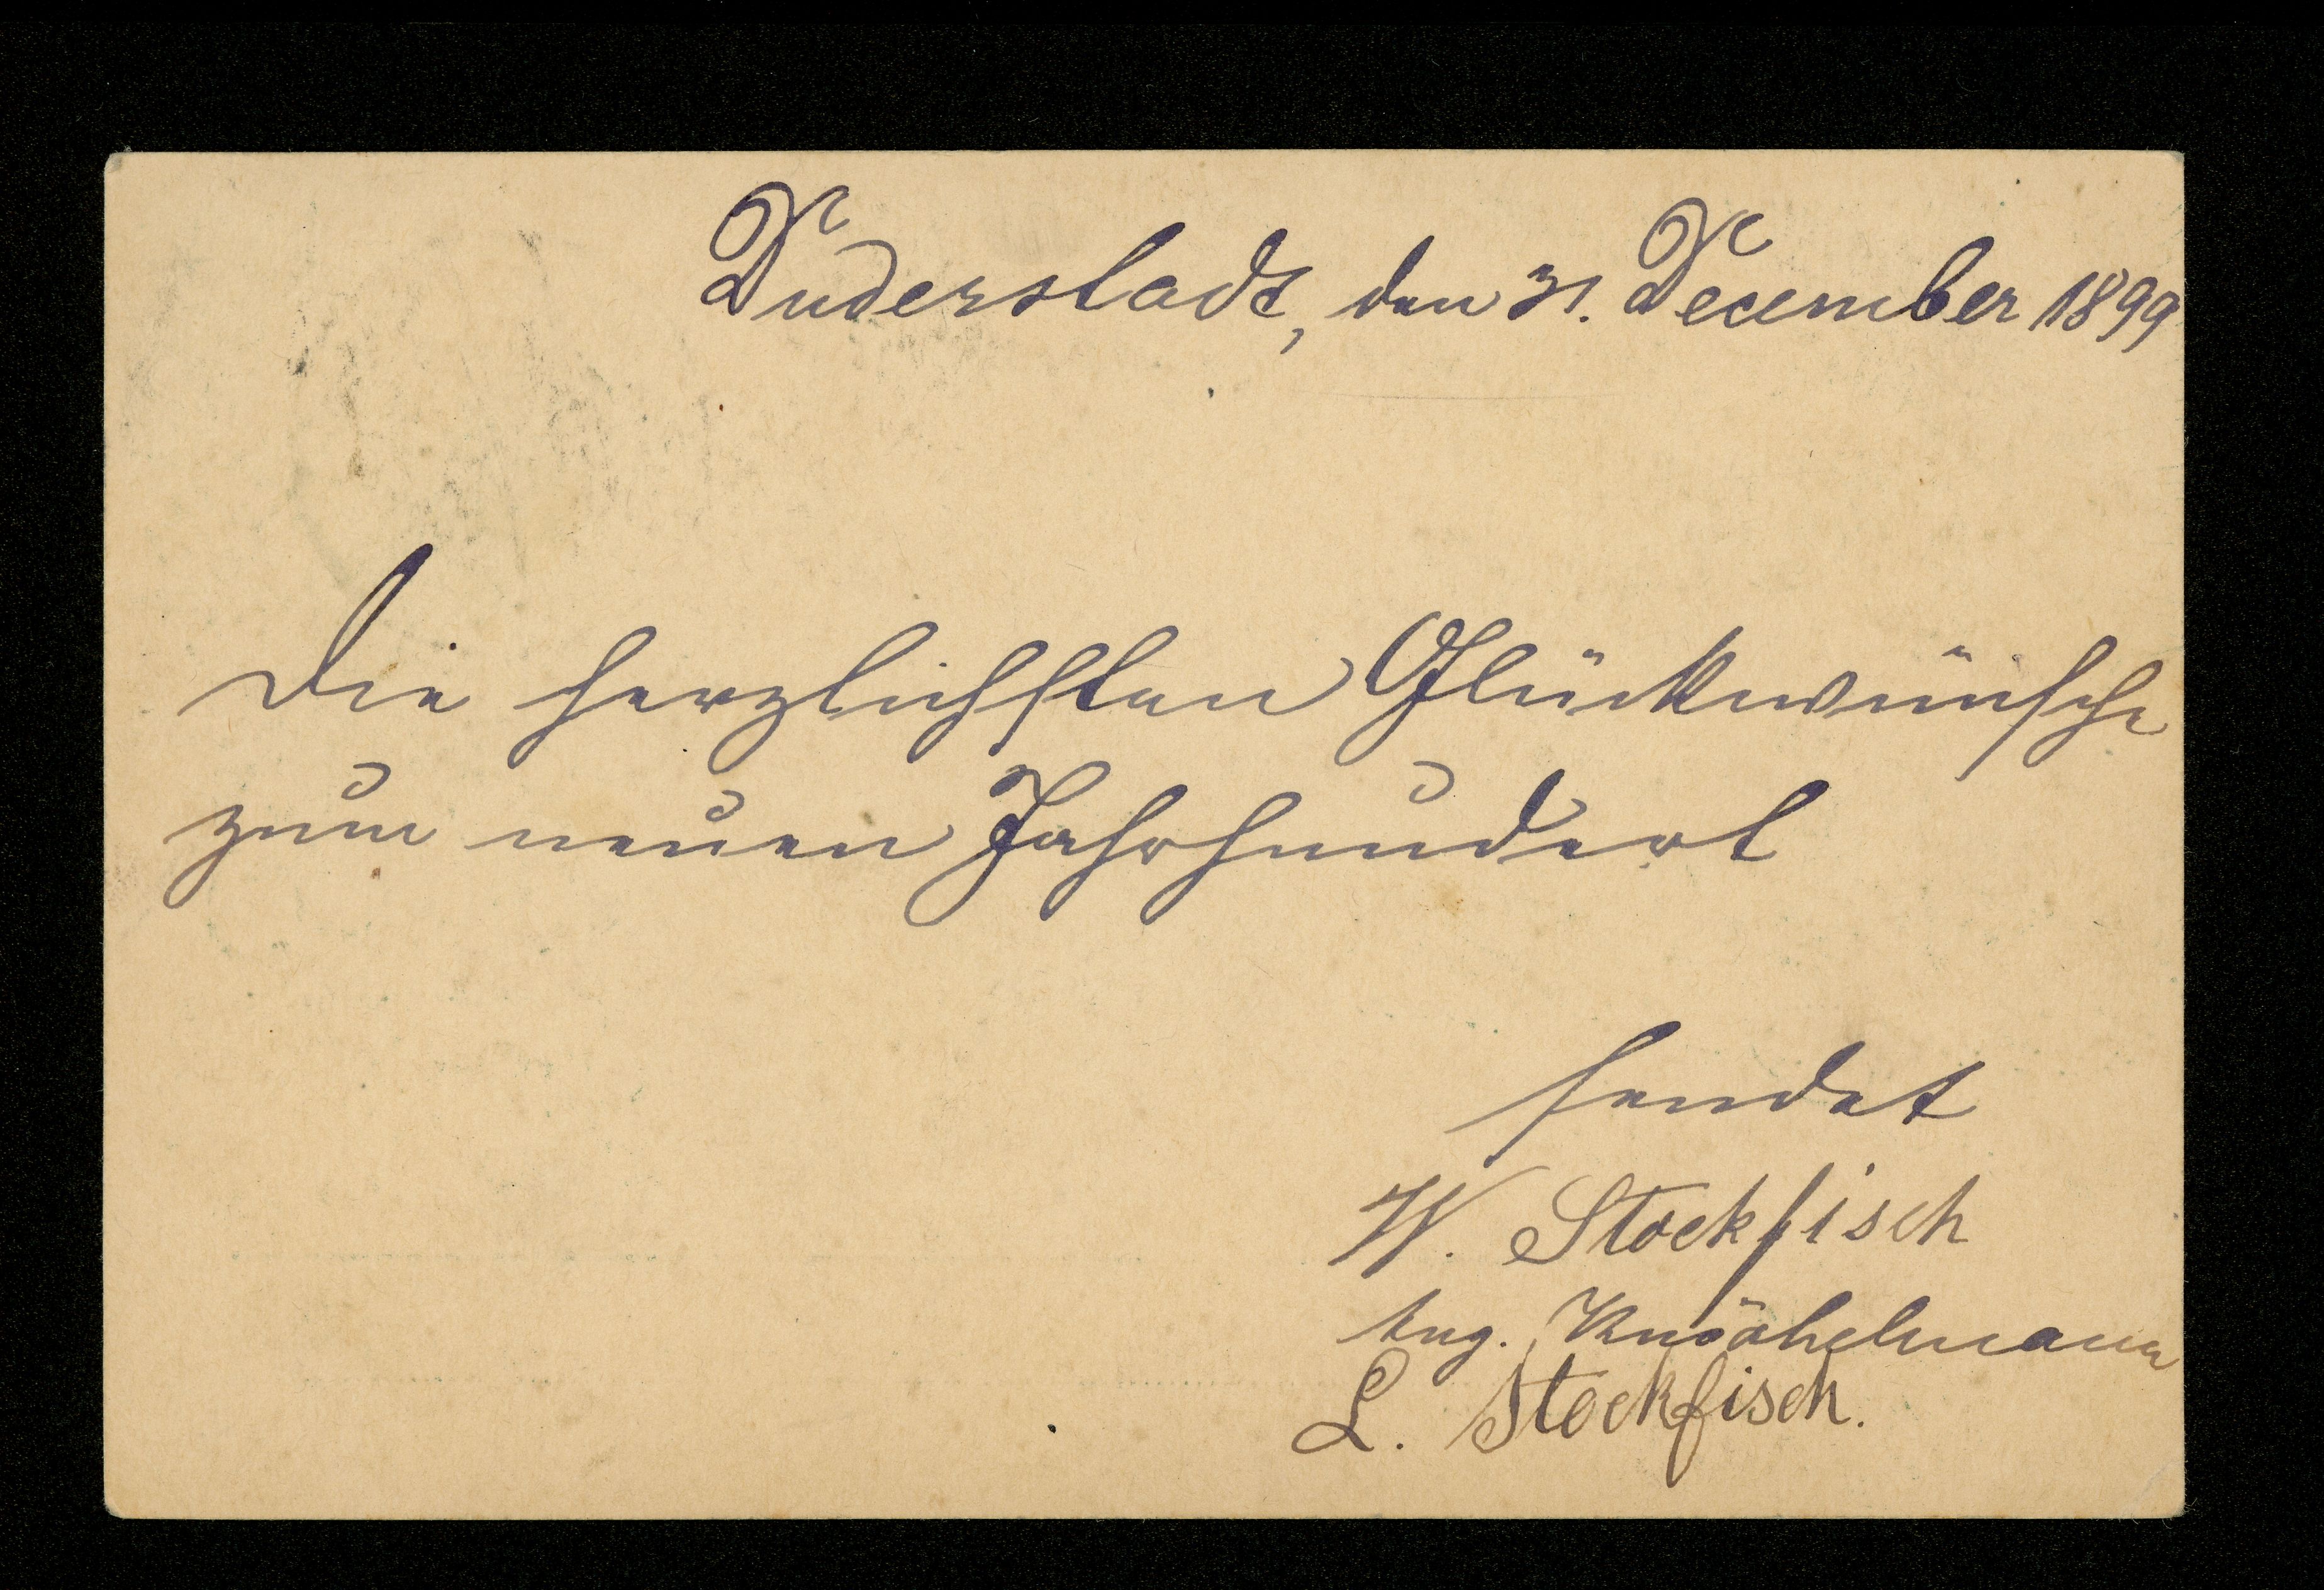 Duderstadt, den 31. December 1899
Die herzlichsten Glückwünsche
zum neuen Jahrhundert
sendet
W. Stockfisch
Aug.
L. Stockfisch.